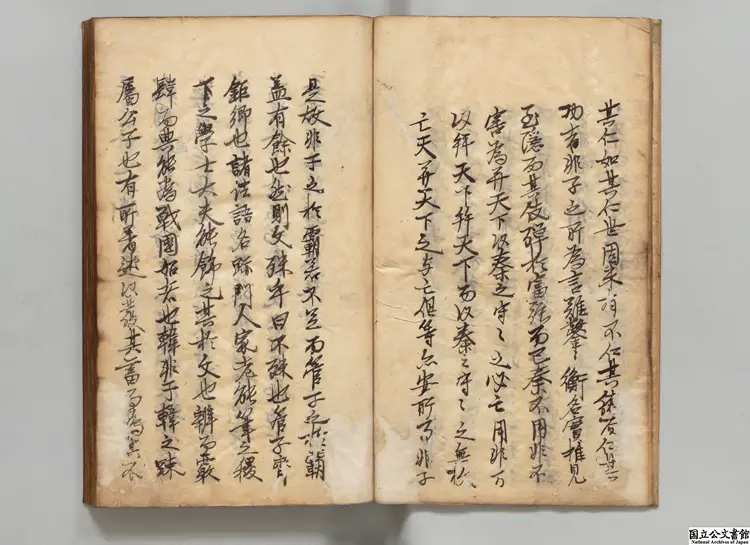 其仁如其仁世固未許不仁其能為仁其
功者非子之所為言雖鑿〻衡名實推見
至隱而其歧殫於富强而已秦不用非不
害為并天下以秦之守〻之必亡用非可
以并天下并天下而以秦之守〻之無救
亡夭并天下之与亡但等亦安所事非子
是故非子之於霸若不足而管子之於霸
蓋有餘也然則文殊乎曰不殊也管子齊
鉅卿也諸法語名跡門人家老能筆之稷
下之學士大夫能飾之其於文也辨而覈
肆而典能為戰國始者也韓非子韓之疎
屬公子也有所著述以發其畜而為其不
国立公文書館
National Archives of Japan